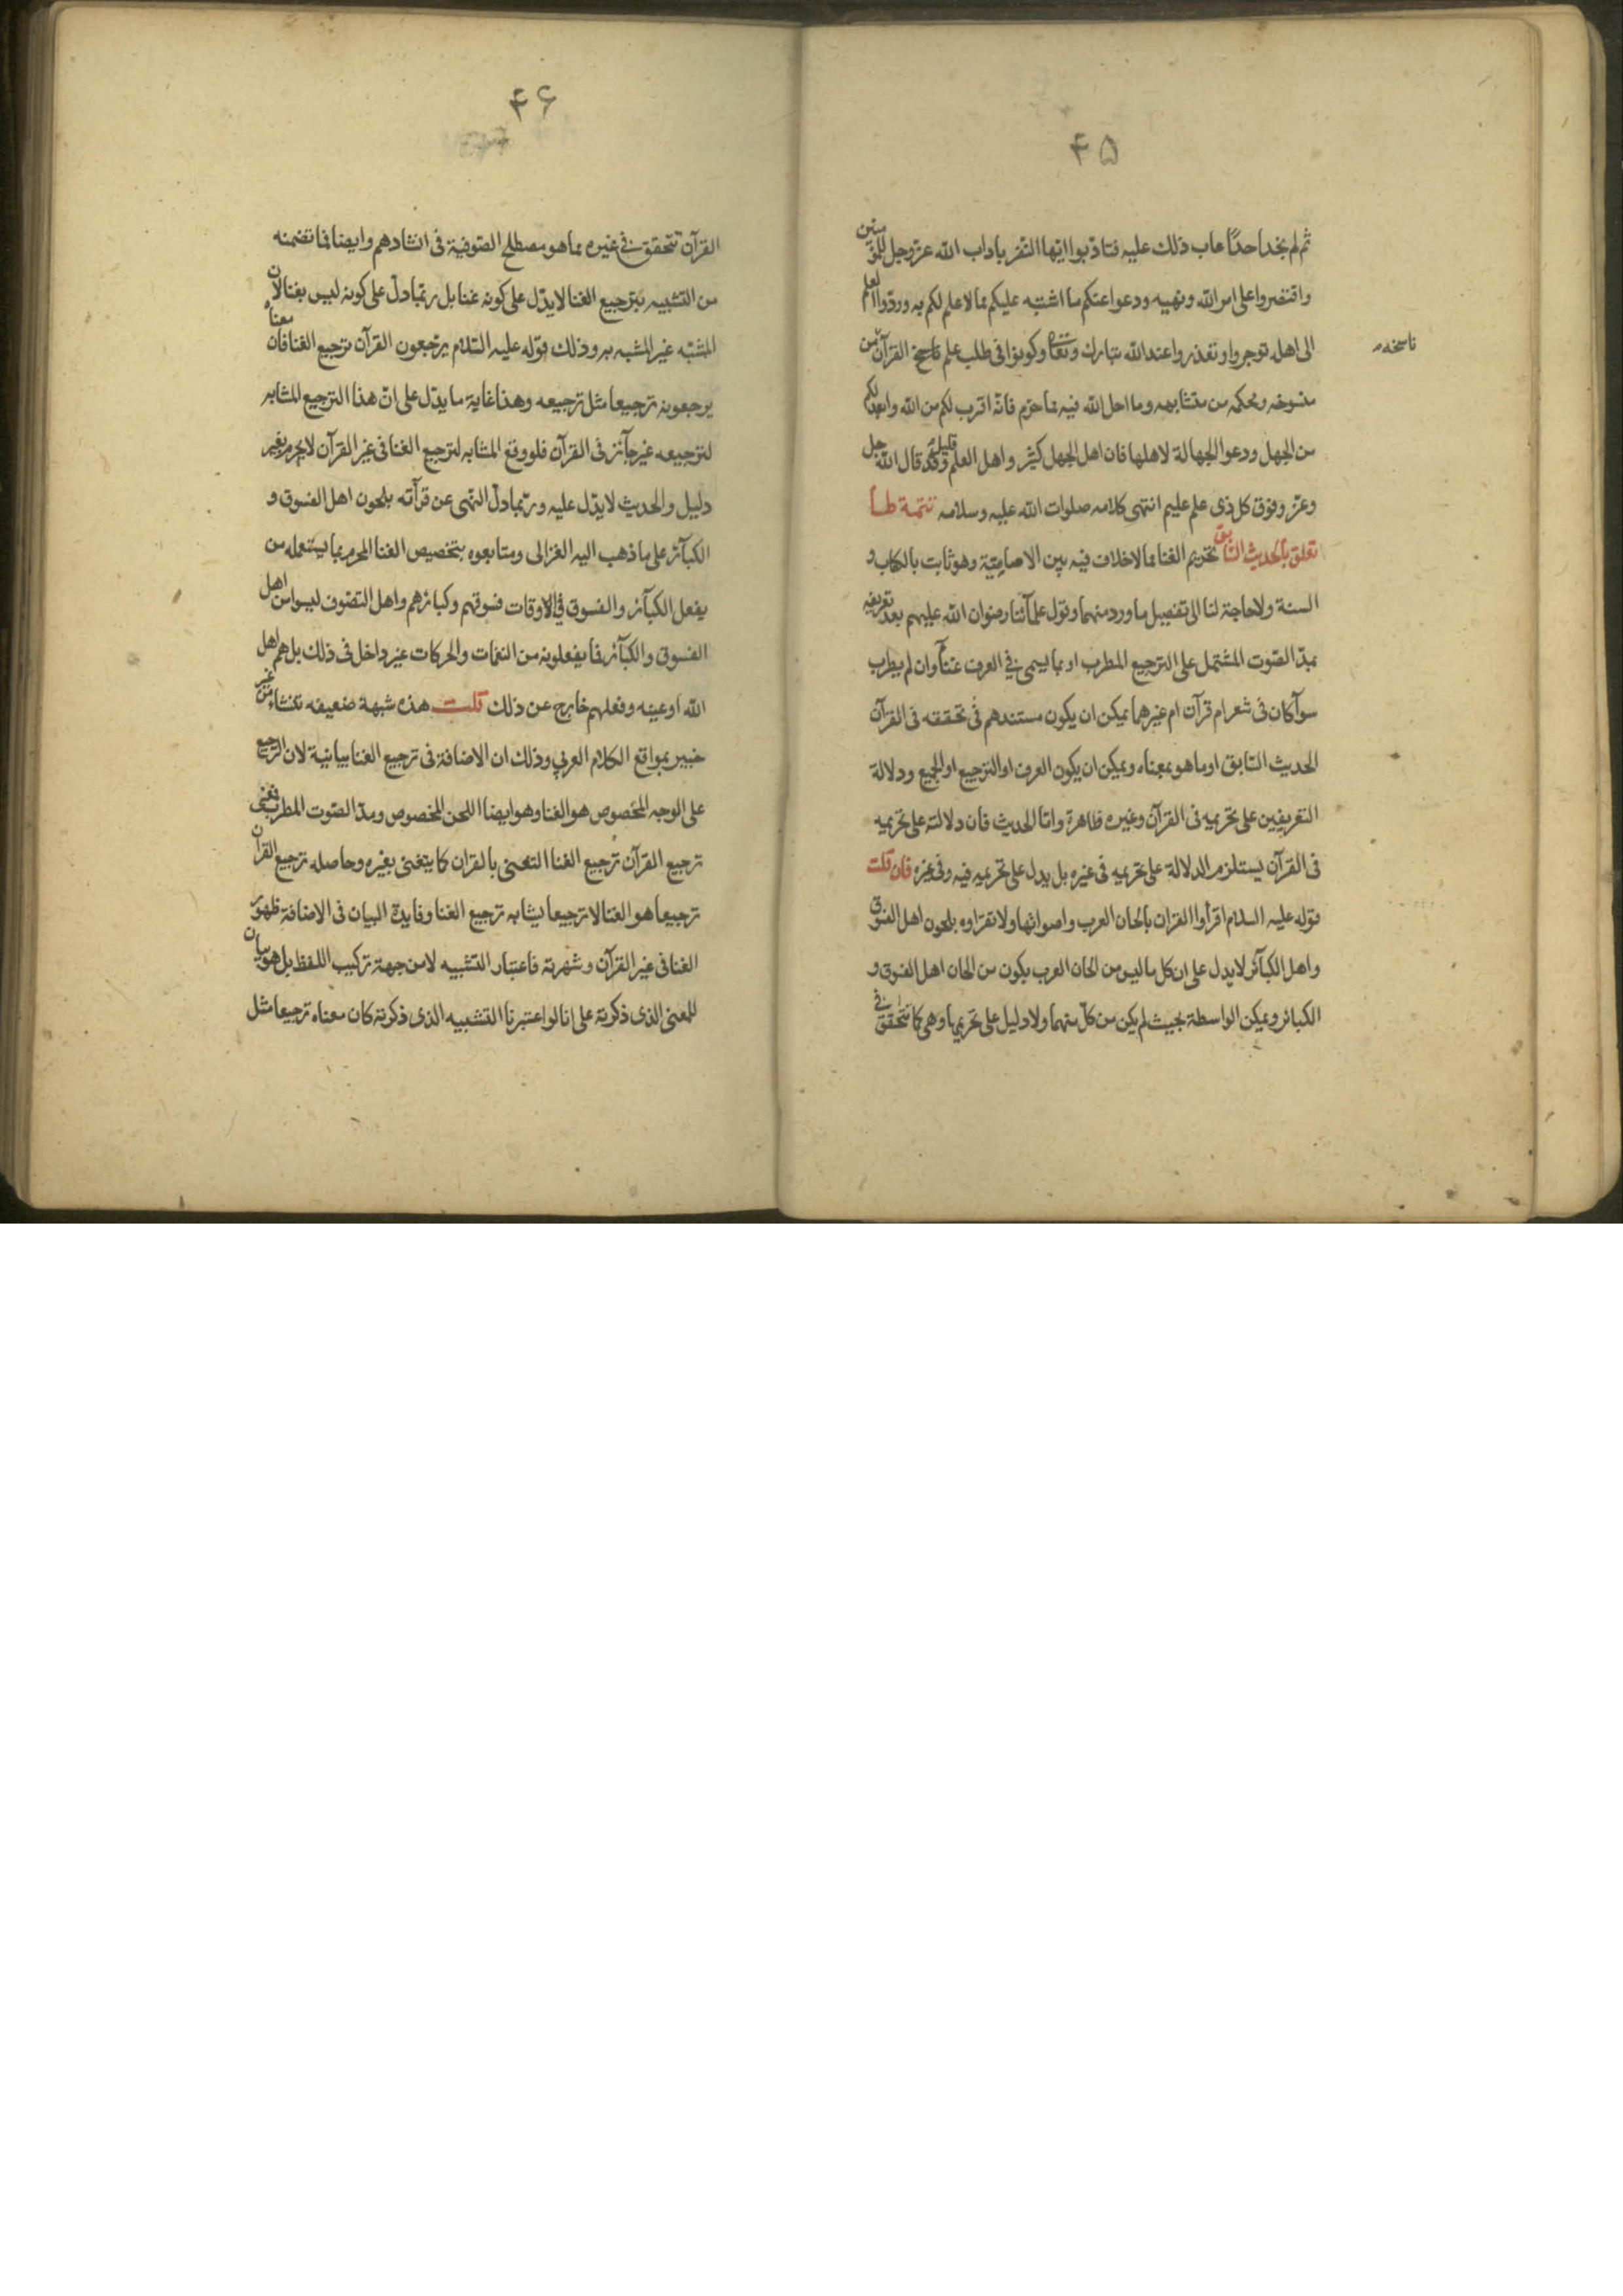 ۴۵
ثم لم يخد احدًا عاب ذلك عليه فتادبوا ايها النفر باداب الله عز وجل للمؤمنين
واقتصروا على امر الله ونهيه ودعوا عنكم ما اشتبه عليكم مما لا علم لكم به وردوا العلم
الى اهله توجروا وتعذروا عند الله تبارك وتعالى وكونوا فى طلب علم ناسخ القرآن من
ناسخه
منسوخه ومحكمه من متشابهه وما احل الله فيه مما حرم فانه اقرب لكم من الله وابعد لكم
من الجهل ودعوا الجهالة لاهلها فان اهل الجهل كثير واهل العلم قليل وقد قال الله جل
وعز وفوق كل ذى علم عليم انتهى كلامه صلوات الله عليه وسلامه تتمة لها
تعلق بالحديث السابق تحريم الغنا مما لا خلاف فيه بين الامامية وهو ثابت بالكتاب و
السنة ولا حاجة لنا الى تفصيل ما ورد منهما وقول علمآئنا رضوان الله عليهم بعد تعريفه
بمدّ الصّوت المشتمل على الترجيع المطرب او بما يسمى فى العرف غنآء وان لم يطرب
سوآء كان فى شعر ام قرآن ام غيرهما يمكن ان يكون مستندهم فى تحققه فى القرآن
الحديث السّابق او ما هو بمعناه ويمكن ان يكون العرف او الترجيع او الجميع ودلالة
التعريفين على تحريمه فى القرآن وغيره ظاهرة وامّا الحديث فان دلالته على تحريمه
فى القرآن يستلزم الدلالة على تحريمه فى غيره بل يدل على تحريمه فيه وفى غيره فان قلت
قوله عليه السلام اقرأوا القران بالحان العرب واصواتها ولا تقراوه بلحون اهل الفسوق
واهل الكبآئر لا يدل على ان كل ما ليس من الحان العرب يكون من الحان اهل الفسوق و
الكبائر ويمكن الواسطة بحيث لم يكن من كلّ منهما ولا دليل على تحريمها وهى كما تتحقق فى
۴۶
القرآن تتحقق فى غيره مما هو مصطلح الصّوفية فى انشادهم وايضا فما تضمنه
من التشبيه بترجيع الغنا لا يدّل على كونه غنا بل ربّما دلّ على كونه ليس بغنا لان
المشبّه غير المشبه به وذلك قوله عليه السّلام يرجّعون القرآن ترجيع الغنا فان معناه
يرجعونه ترجيعا مثل ترجيعه وهذا غاية ما يدّل على انّ هذا الترجيع المشابه
لترجيعه غير جآئز فى القرآن فلو وقع المشابه لترجيع الغنا فى غير القرآن لا يحرم بغير
دليل والحديث لا يدّل عليه وربّما دلّ النّهى عن قرآئته بلحون اهل الفسوق و
الكبآئر على ما ذهب اليه الغزالى ومتابعوه بتخصيص الغنا المحرم بما يستعمله من
يفعل الكبآئر والفسوق فى الاوقات فسوقهم وكبائرهم واهل التصّوف ليسوا من اهل
الفسوق والكبآئر فما يفعلونه من النغمات والحركات غير داخل فى ذلك بل هم اهل
الله او عينه وفعلهم خارج عن ذلك قلت هذه شبهة ضعيفه تنشاء من غير
خبير بمواقع الكلام العربي وذلك ان الاضافة فى ترجيع الغنا بيانية لان الترجيع
على الوجه المخصوص هو الغنا وهو ايضا اللحن المخصوص ومدّ الصّوت المطرب فمعنى
ترجيع القرآن ترجيع الغنا التغنى بالقران كما يتغنى بغيره وحاصله ترجيع القرآن
ترجيعا هو الغنا لا ترجيعا يشابه ترجيع الغنا وفايدة البيان فى الاضافة ظهور
الغنا فى غير القرآن وشهرته فاعتبار التشبيه لا من جهة تركيب اللفظ بل هو بيان
للمعنى الذى ذكرته على انا لو اعتبرنا التشبيه الذى ذكرته كان معناه ترجيعا مثل